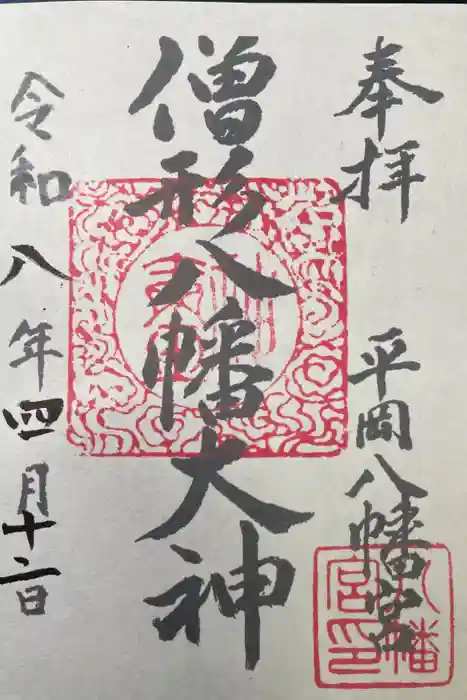 奉拝
平岡八幡宮
僧形八幡大神
令和八年四月十二日
八幡宮印